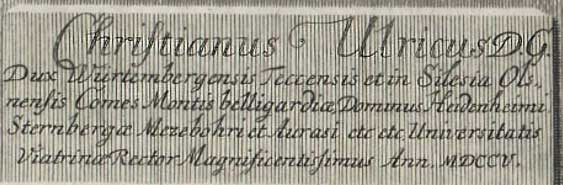 Chriſtianus Ulricus D.G.
Dux Würtembergensis Teccensis et in Silesia Ols,,
nenſis Comes Montis belligardiæ, Dominus Heidenheimi
Sternbergæ Mezebohri et Aurasi etc etc, Universitatis
Viatrinæ Rector Magnificentiſsimus Ann. MDCCV.